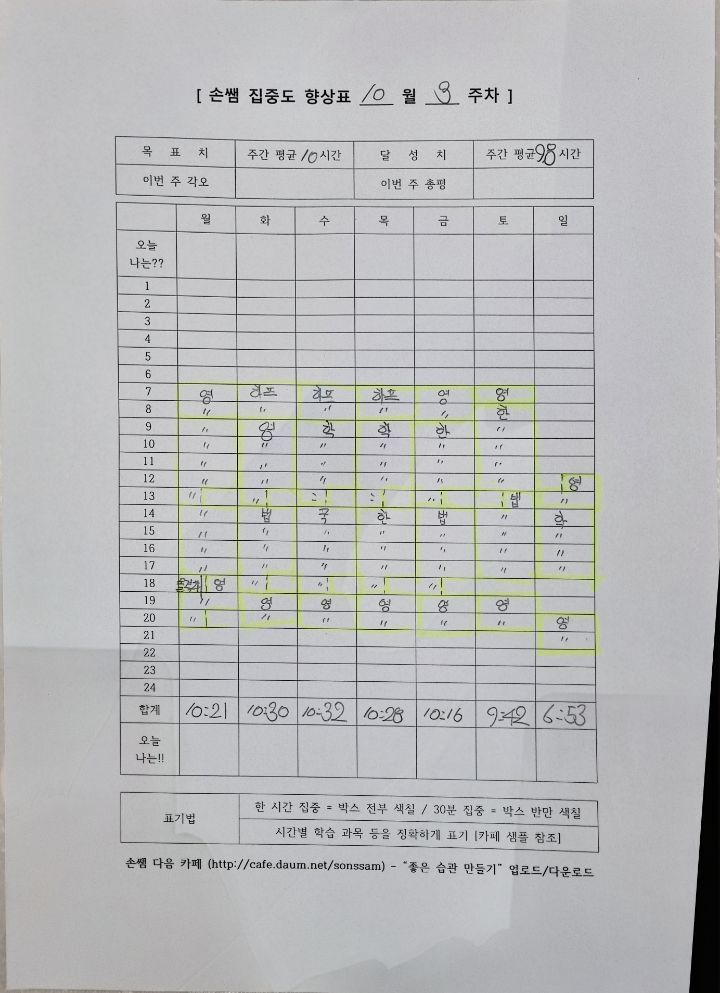 [ 손쌤 집중도 향상표 10 월 3 주차 ]
목 표 치 주간 평균 10 시간 달 성 치 주간 평균 9.8 시간
이번 주 각오 이번 주 총평
월 화 수 목 금 토 일
오늘
나는??
1
2
3
4
5
6
7 영 하프 하프 하프 영 영
8 〃 〃 〃 〃 〃 한
9 〃 영 학 학 한 〃
10 〃 〃 〃 〃 〃 〃
11 〃 〃 〃 〃 〃 〃
12 〃 〃 〃 〃 〃 〃 영
13 〃 〃 〃 〃 〃 법 〃
14 〃 법 국 한 법 〃 학
15 〃 〃 〃 〃 〃 〃 〃
16 〃 〃 〃 〃 〃 〃 〃
17 〃 〃 〃 〃 〃 〃 〃
18 영 〃 〃 〃 〃
19 〃 영 영 영 영 영
20 〃 〃 〃 〃 〃 〃 영
21 〃
22
23
24
합계 10:21 10:30 10:32 10:28 10:16 9:42 6:53
오늘
나는!!
표기법 한 시간 집중 = 박스 전부 색칠 / 30분 집중 = 박스 반만 색칠
시간별 학습 과목 등을 정확하게 표기 [카페 샘플 참조]
손쌤 다음 카페 (http://cafe.daum.net/sonssam) - "좋은 습관 만들기" 업로드/다운로드